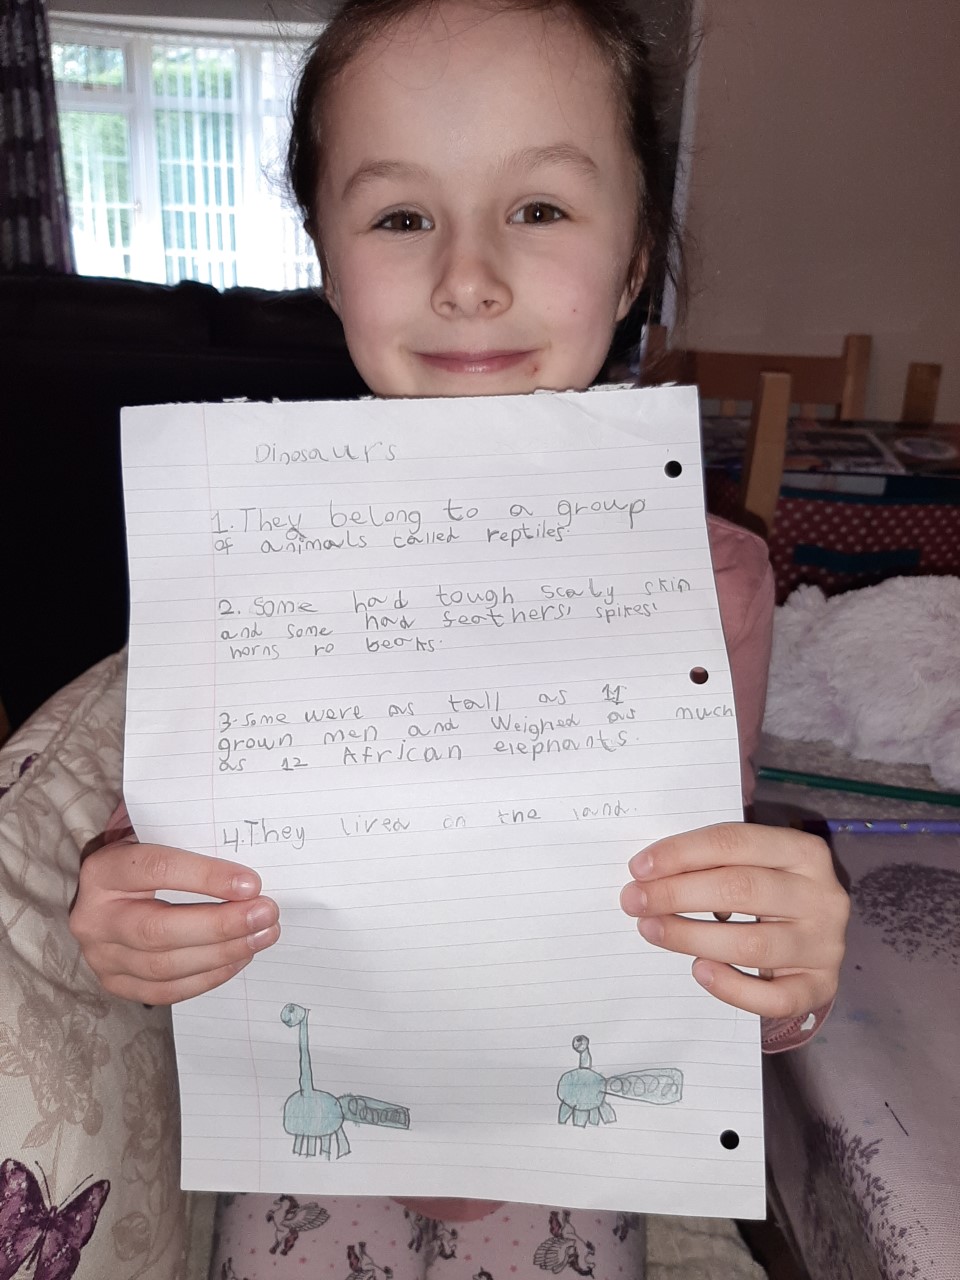 Dinosaurs
1. They belong to a group
of animals called reptiles.
2. Some had tough scaly skin
and some had feathers, spikes,
horns ro beaks.
3. Some were as tall as 11
grown men and weighed as much
as 12 African elephants.
4. They lived on the land.